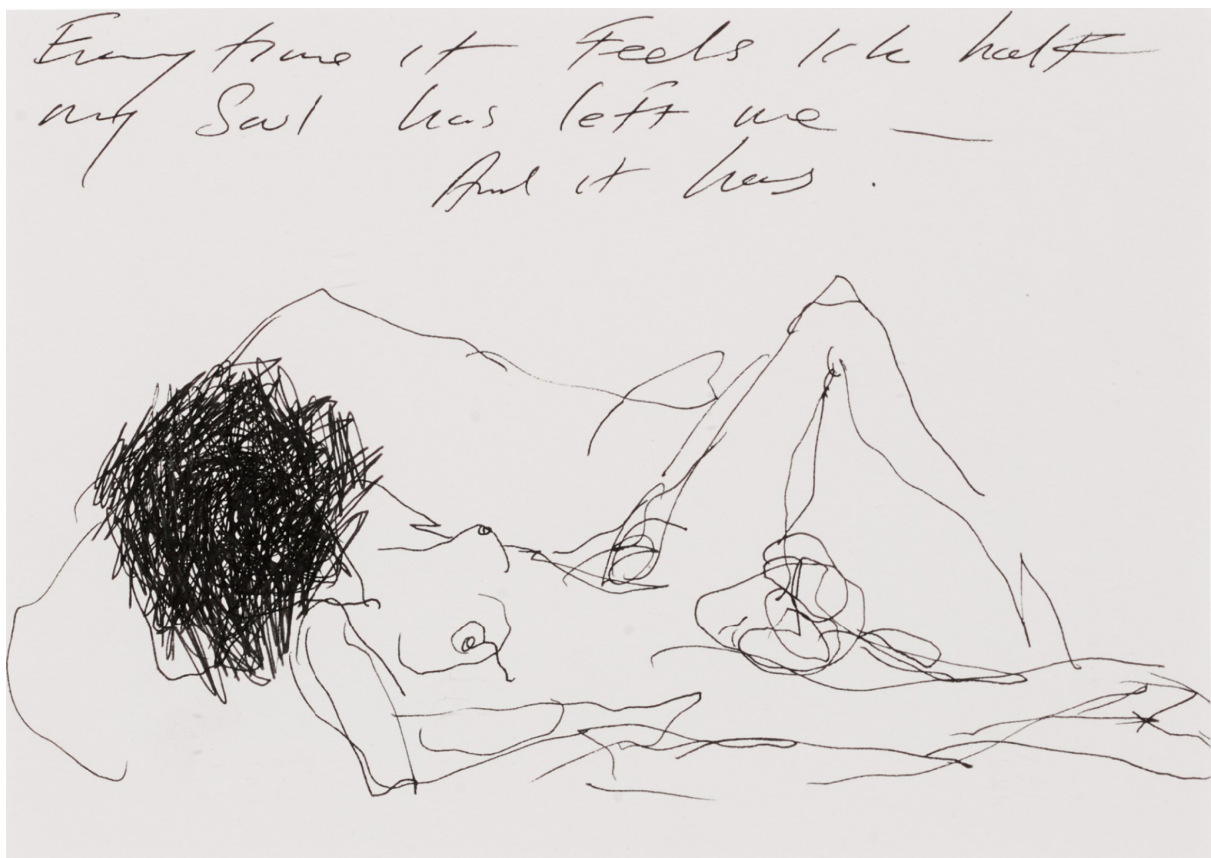 Every time it Feels lik half
my Soul has left me —
And it has .